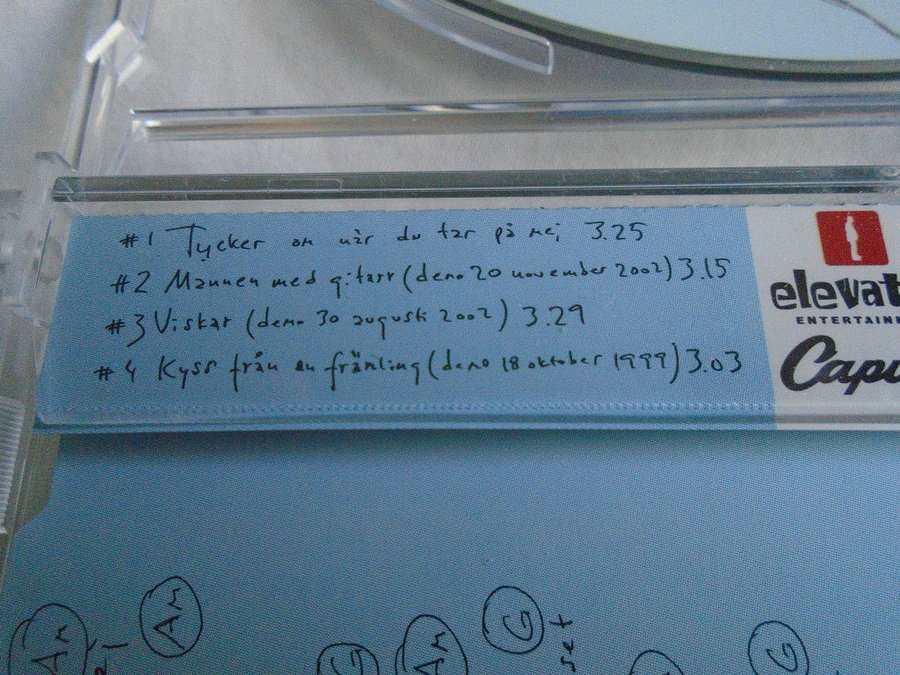 #1 Tycker om när du tar på mej 3.25
#2 Mannen med gitarr (demo 20 november 2002) 3.15
#3 Viskar (demo 30 augusti 2002) 3.29
#4 Kyss från en främling (demo 18 oktober 1999) 3.03
elevat
ENTERTAINM
Capi
Am
Am
G
Am
G
set
G